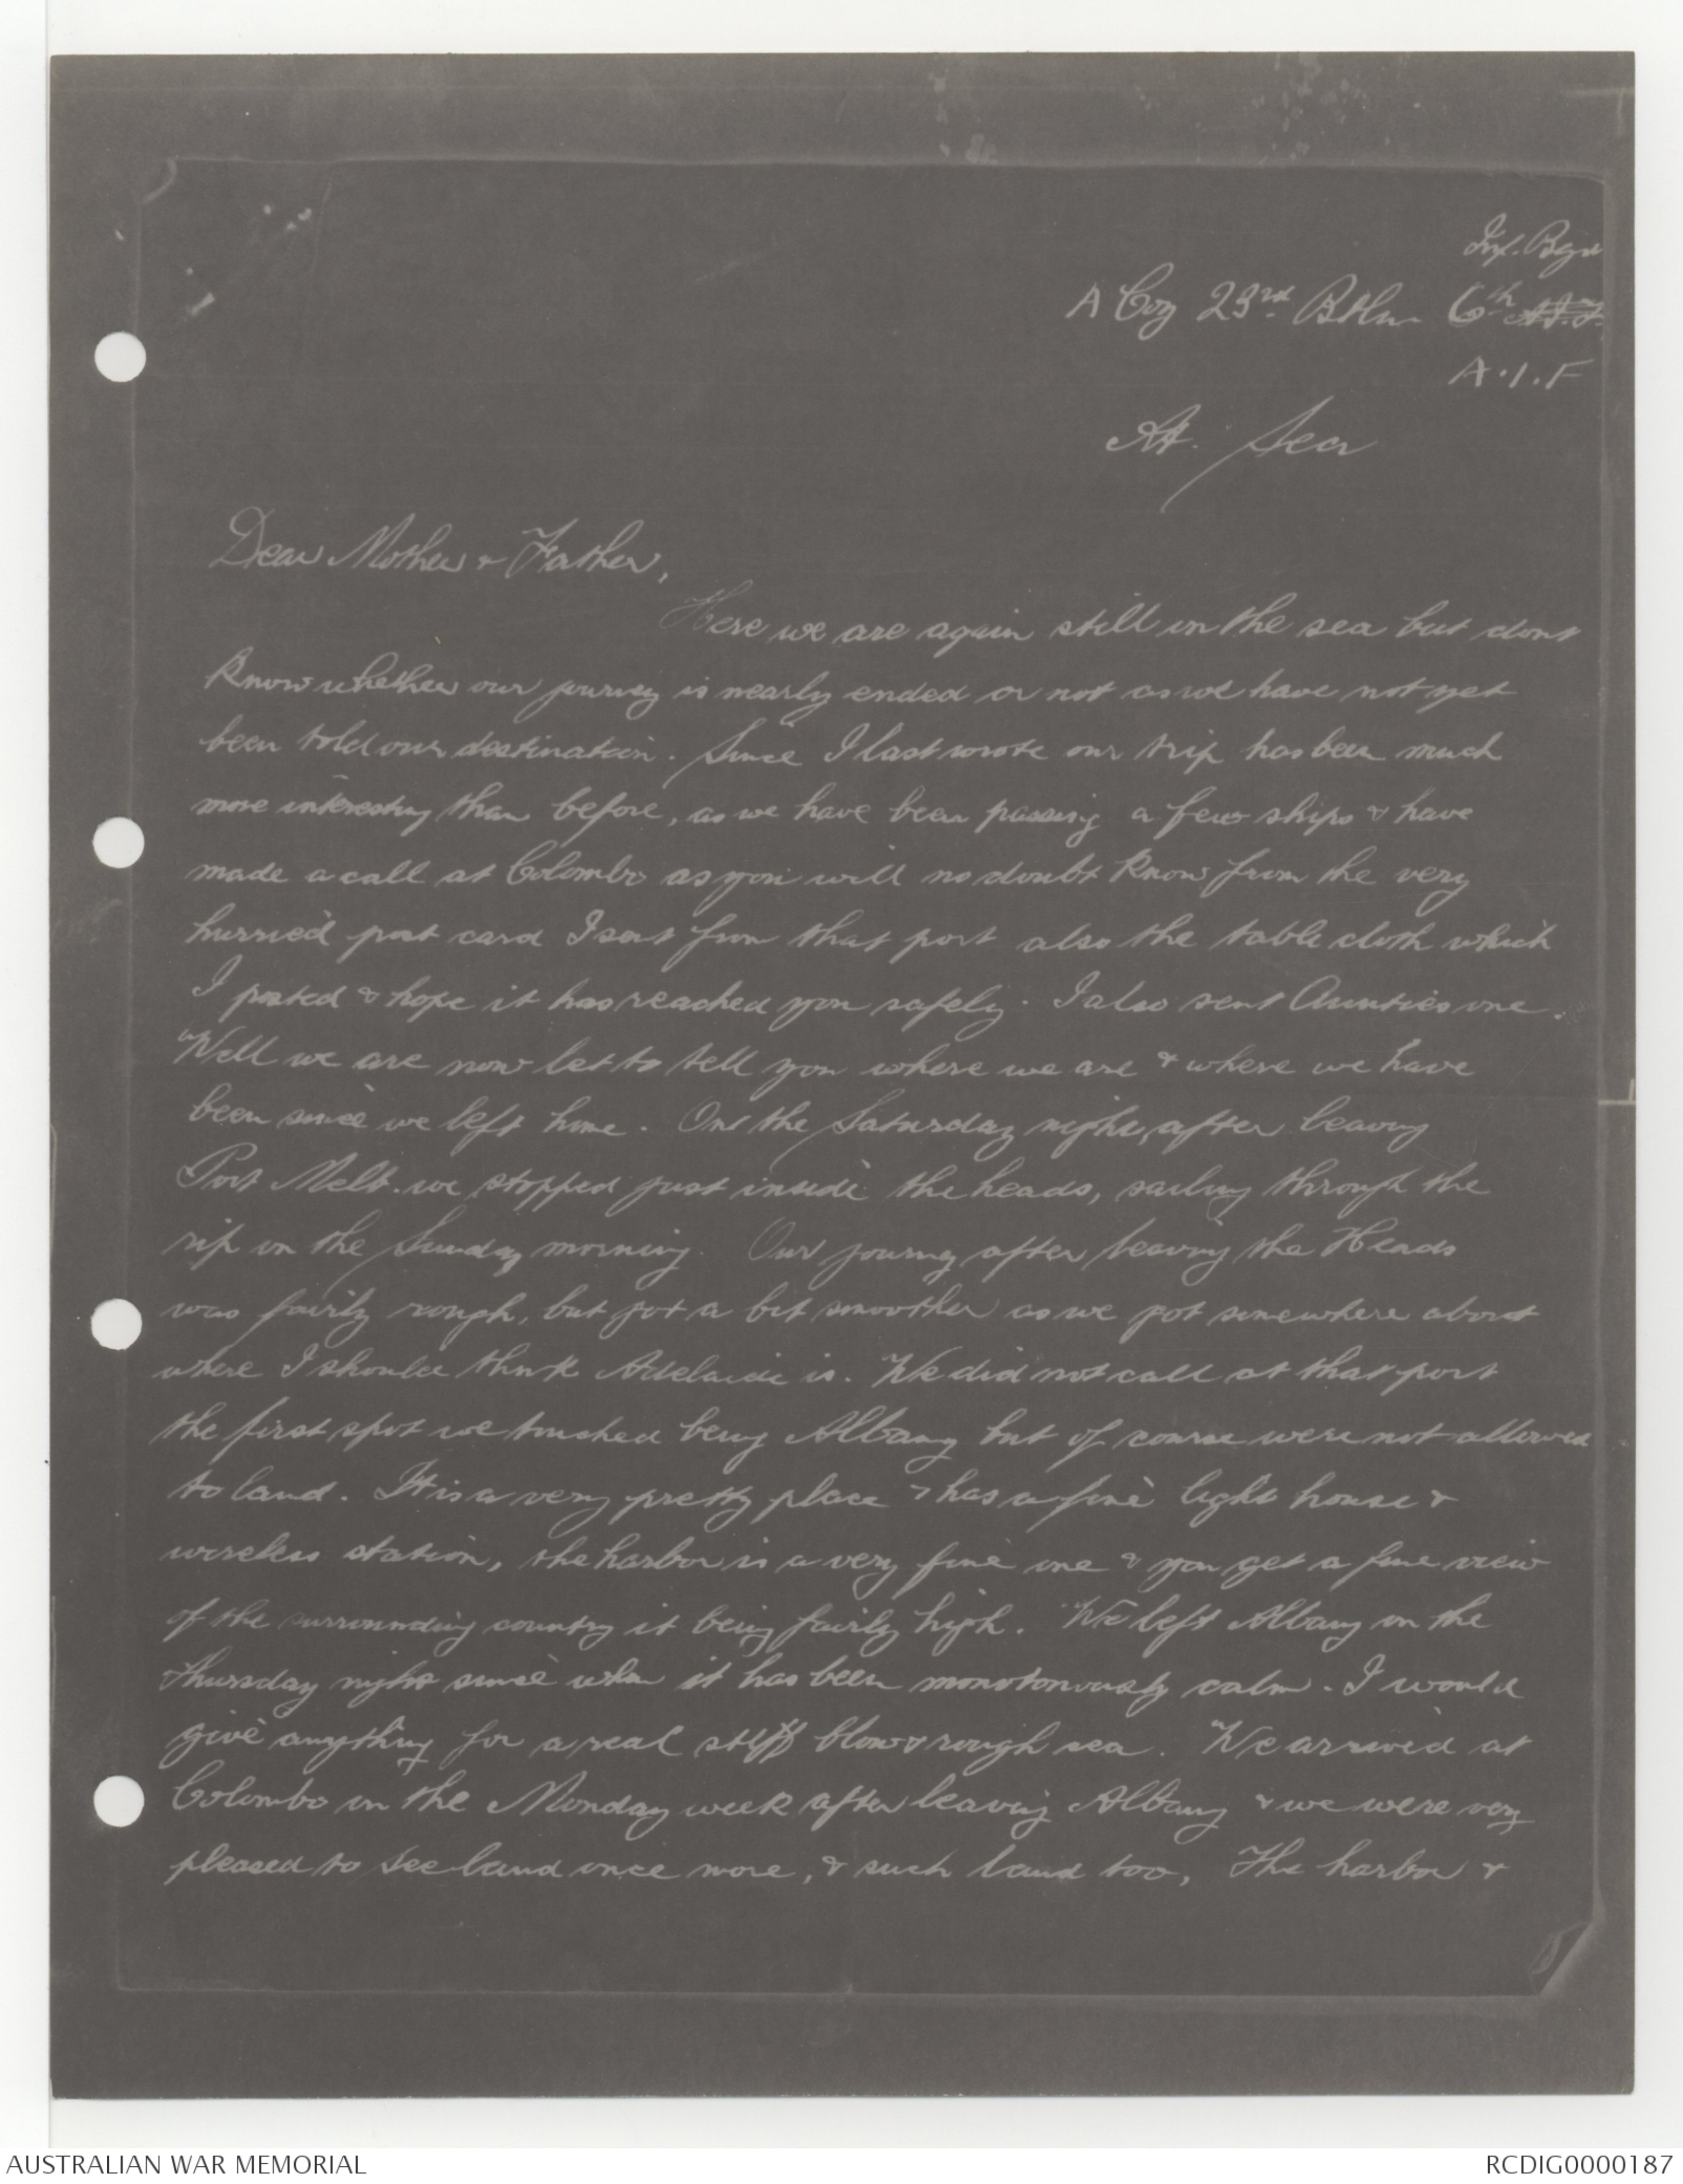 Inf. Bgde
A Coy 23rd. Btln 6th A.I.F.
A.I.F
At. Sea
Dear Mother & Father,
Here we are again still on the sea but dont
know whether our journey is nearly ended or not as we have not yet
been told our destination. Since I last wrote our trip has been much
more interesting than before, as we have been passing a few ships & have
made a call at Colombo as you will no doubt know from the very
hurried post card I sent from that port also the table cloth which
I posted & hope it has reached you safely. I also sent Aunties one.
Well we are now let to tell you where we are & where we have
been since we left home. On the Saturday night, after leaving
Port Melb. we stopped just inside the heads, sailing through the
rip on the Sunday morning. Our journey after leaving the Heads
was fairly rough, but got a bit smoother as we got somewhere about
where I should think Adelaide is. We did not call at that port
the first spot we touched being Albany but of course were not allowed
to land. It is a very pretty place & has a fine light house &
wireless station, the harbor is a very fine one & you get a fine view
of the surrounding country it being fairly high. We left Albany on the
Thursday night since when it has been monotonously calm. I would
give anything for a real stiff blow & rough sea. We arrived at
Colombo on the Monday week after leaving Albany & we were very
pleased to see land once more, & such land too, The harbor &
AUSTRALIAN WAR MEMORIAL
RCDIG0000187